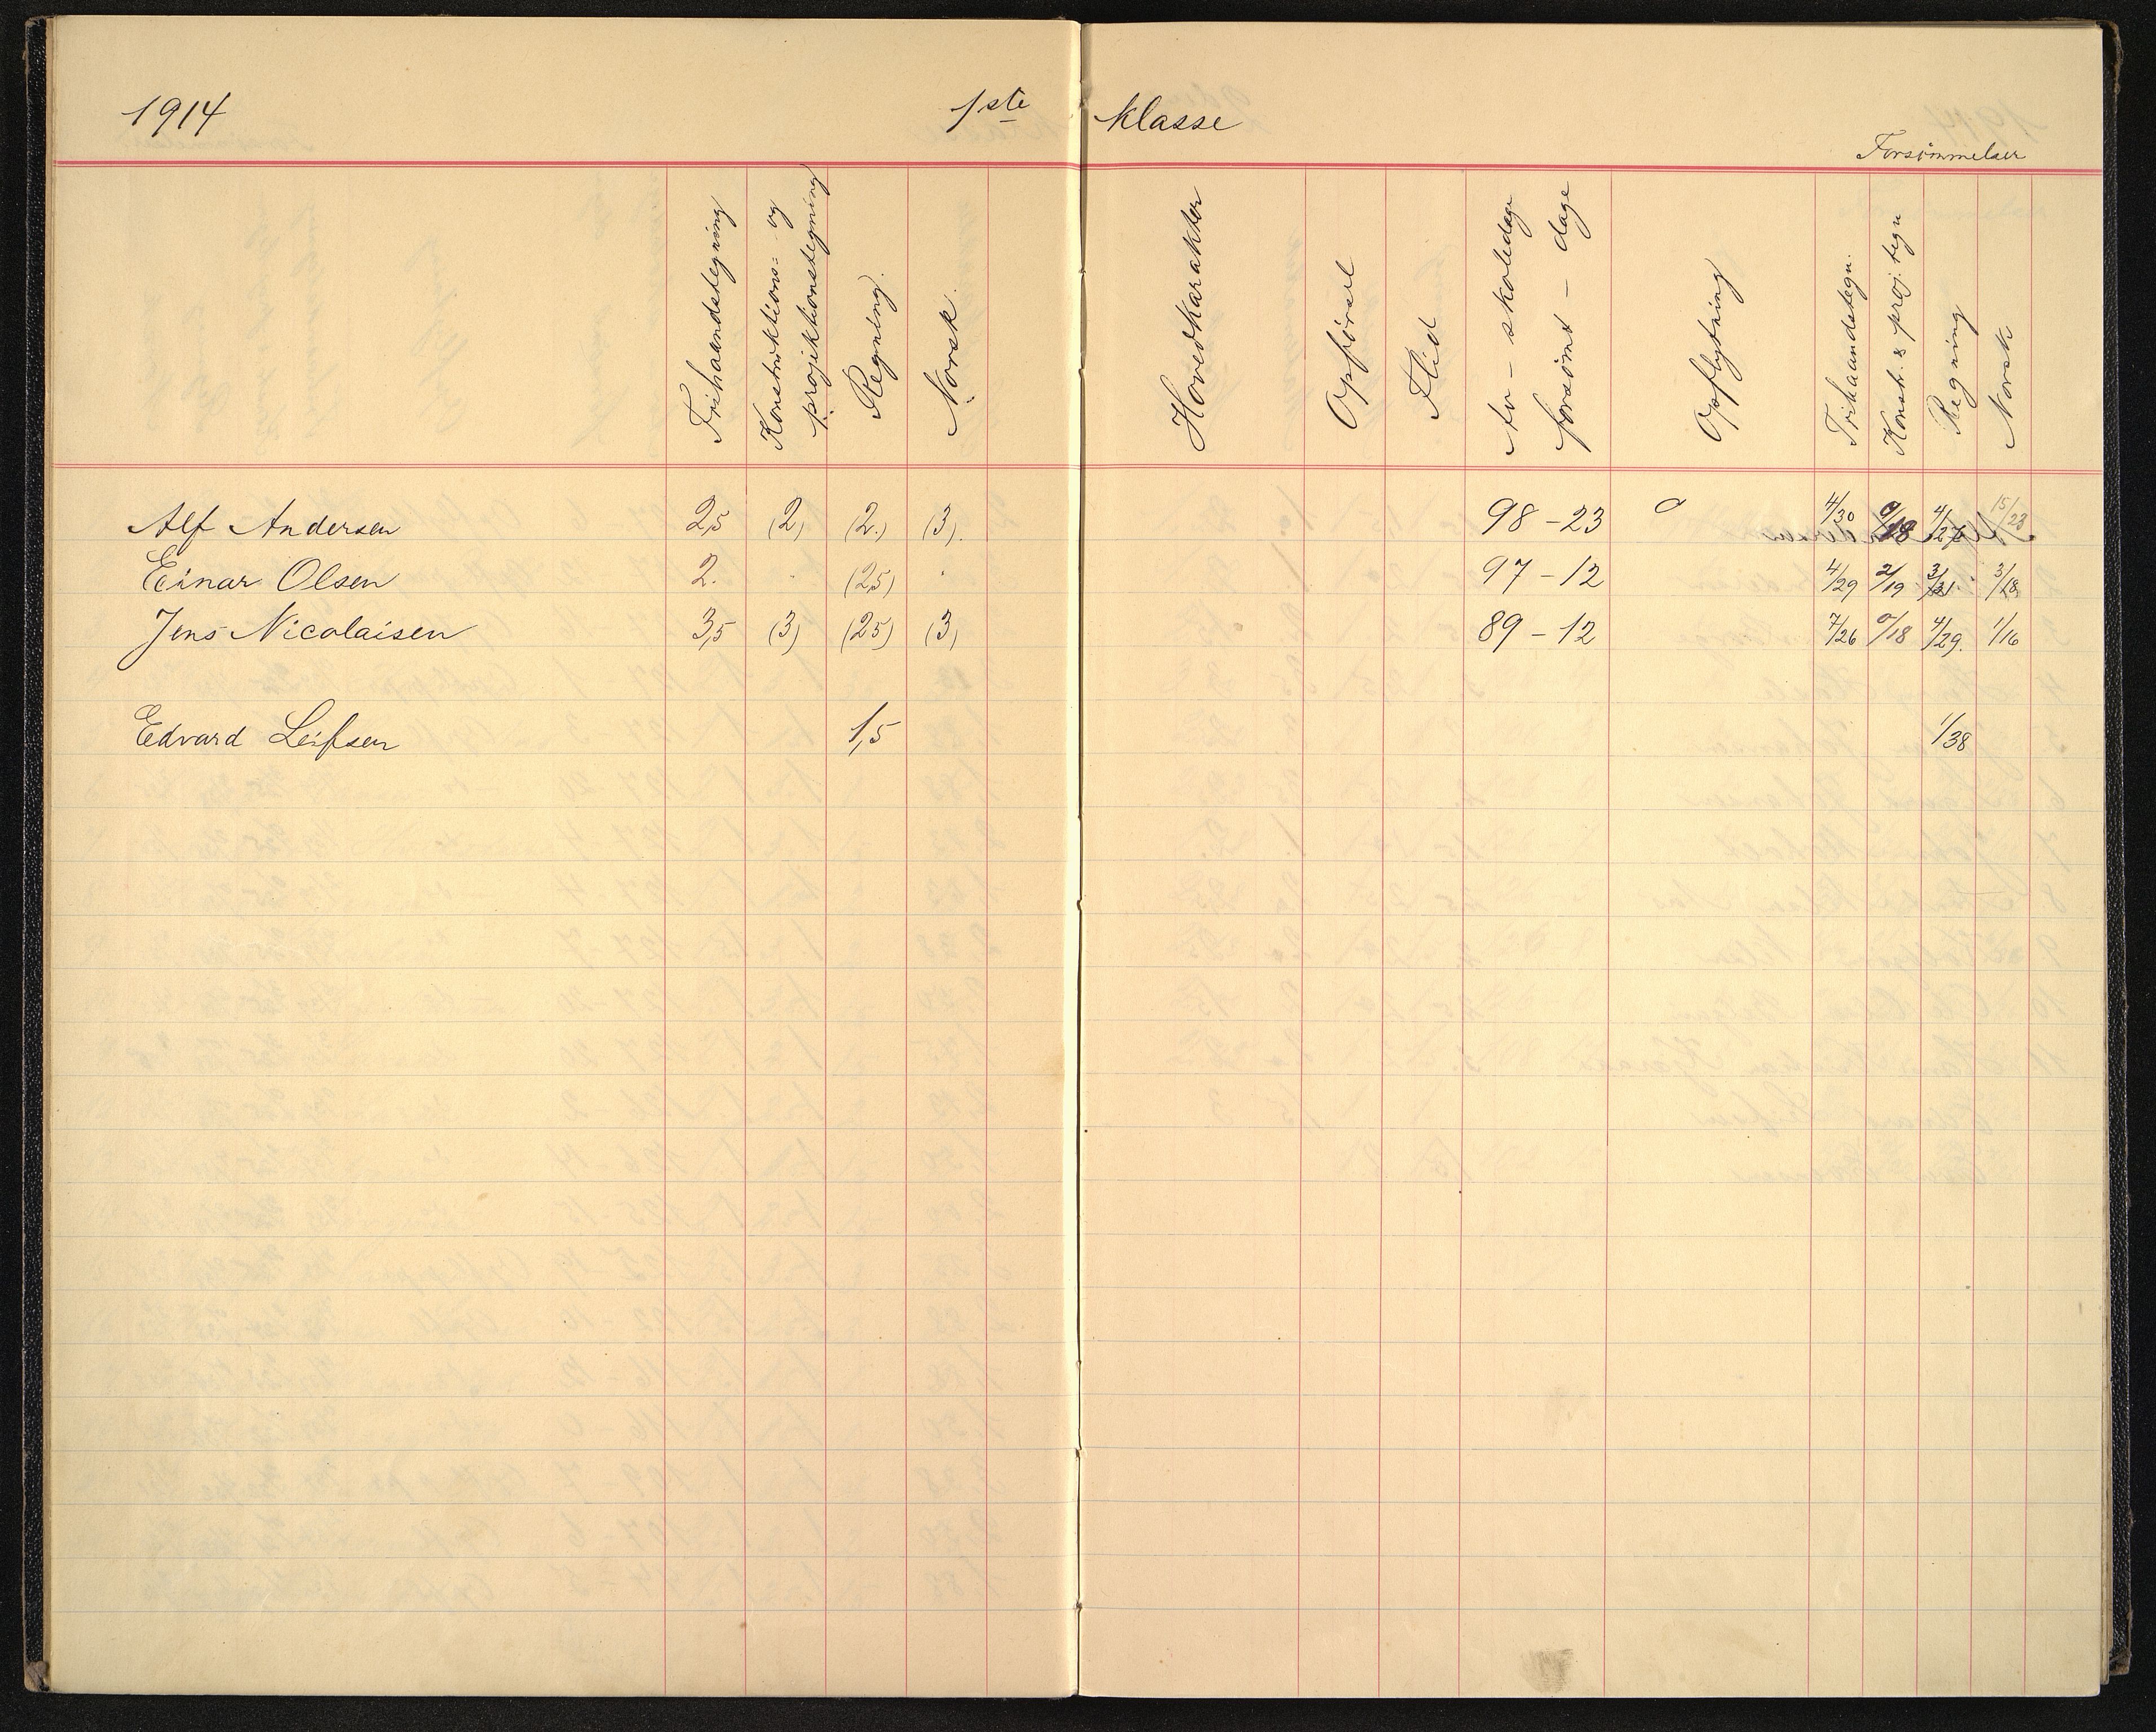 1914 1ste klasse
Forsømmelser
Frihaandstegning
Konstruktions- og
projektionstegning
Regning.
Norsk.
Hovedkarakter
Opførsel
Flid
skoledage
forsømt - dage
Opflytning
Frihaandstegn.
Konstr. & proj. tegn
Regning
Norsk
Alf Andersen 2,5 (2) (2.) (3). 98 - 23 0 4/30 0/18 4/27 15/23
Einar Olsen 2. (2,5) 97 - 12 4/29 2/19 3/31 3/18
Jens Nicolaisen 3,5 (3) (2,5) (3) 89 - 12 7/26 0/18 4/29. 1/16
Edvard Leifsen 1,5 1/38